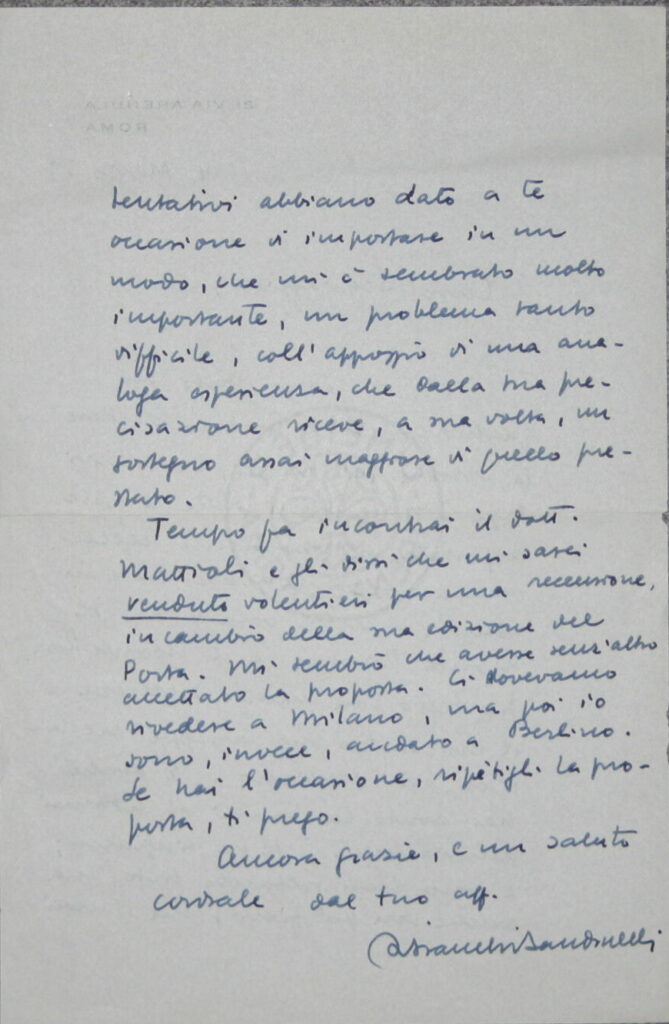 21 VIA ARENULA
ROMA
tentativi abbiano dato a te
occasione di impostare in un
modo, che mi è sembrato molto
importante, un problema tanto
difficile, coll'appoggio di una ana-
loga esperienza, che dalla tua pre-
cisazione riceve, a sua volta, un
sostegno assai maggiore di quello pre-
stato.
Tempo fa incontrai il dott.
Mattioli e gli dissi che mi sarei
venduto volentieri per una recensione,
in cambio della sua edizione del
Porta. Mi sembrò che avesse senz'altro
accettato la proposta. Ci dovevamo
rivedere a Milano, ma poi io
sono, invece, andato a Berlino.
Se hai l'occasione, ripetigli la pro-
posta, ti prego.
Ancora grazie, e un saluto
cordiale dal tuo aff.
RBianchiBandinelli